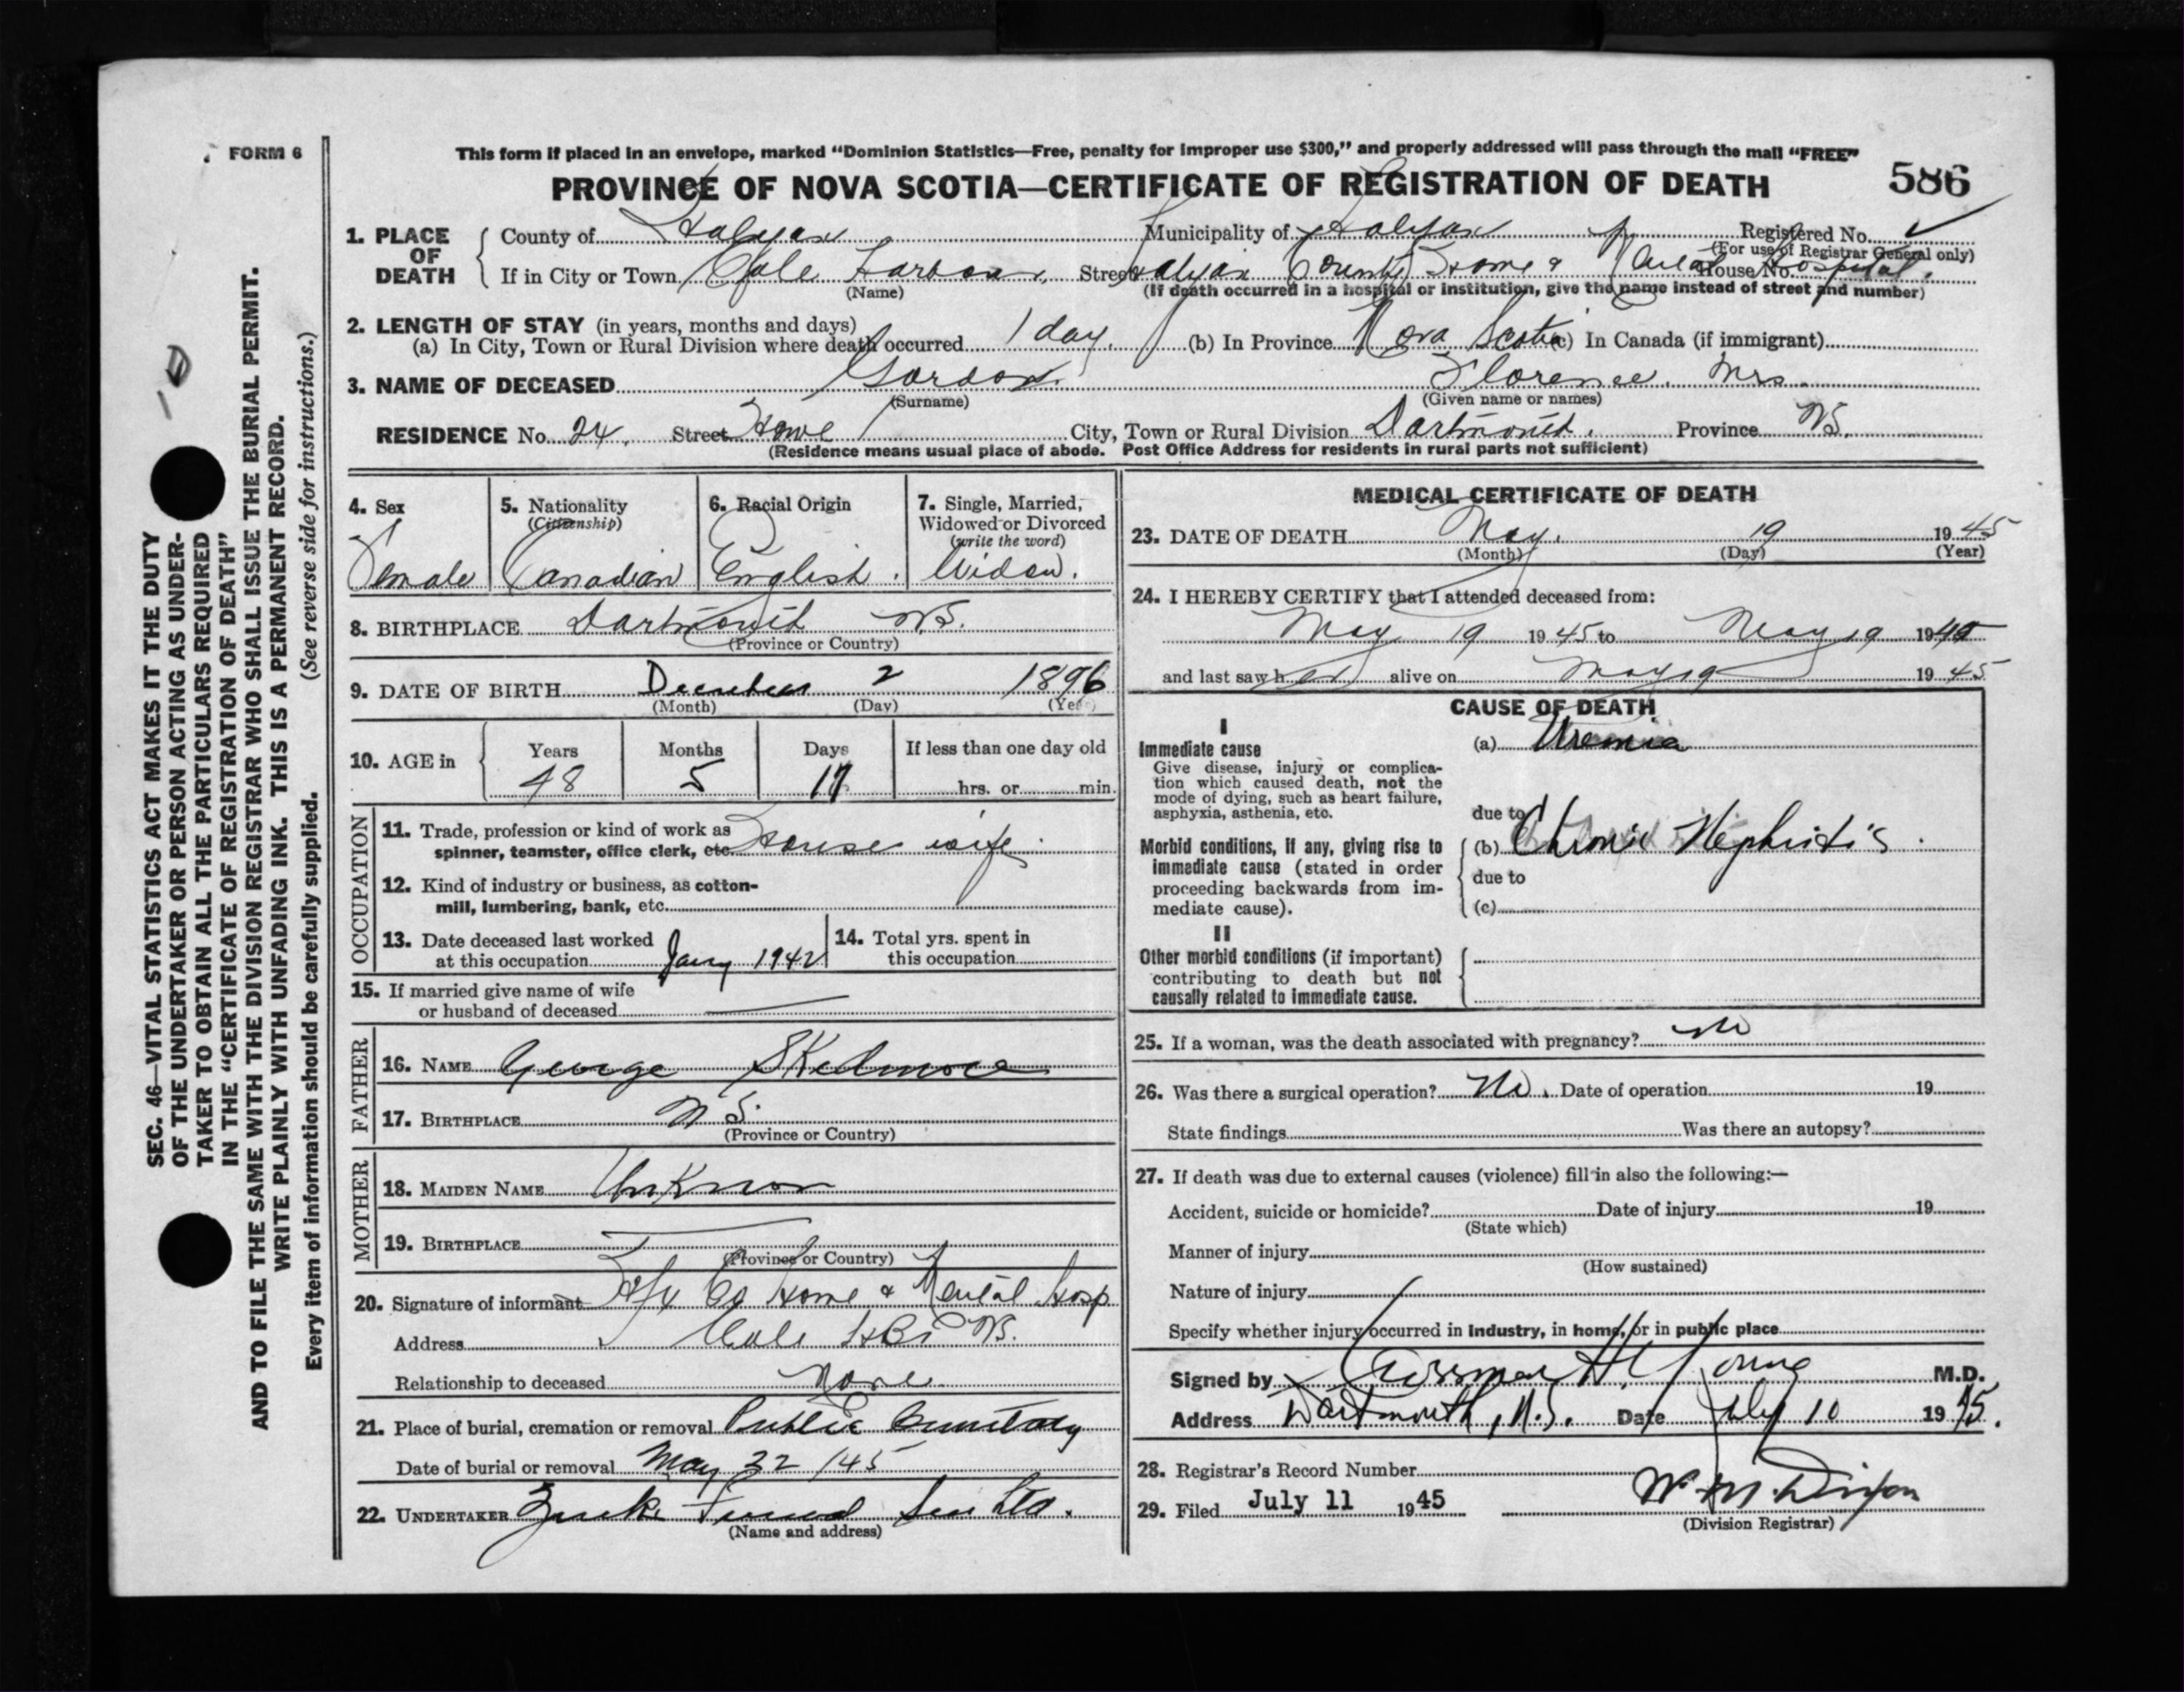 FORM 6
This form if placed in an envelope, marked "Dominion Statistics—Free, penalty for improper use $300," and properly addressed will pass through the mail "FREE"
PROVINCE OF NOVA SCOTIA—CERTIFICATE OF REGISTRATION OF DEATH 586
1. PLACE OF DEATH County of Halifax Municipality of Halifax Registered No.
(For use of Registrar General only)
If in City or Town Cole Harbour Street Halifax County Home & Mental Hospital. House No.
(Name) (If death occurred in a hospital or institution, give the name instead of street and number)
2. LENGTH OF STAY (in years, months and days)
(a) In City, Town or Rural Division where death occurred 1 day. (b) In Province Nova Scotia (c) In Canada (if immigrant)
3. NAME OF DECEASED Gordon Florence. Mrs.
(Surname) (Given name or names)
RESIDENCE No. 24. Street Howe City, Town or Rural Division Dartmouth. Province NS.
(Residence means usual place of abode. Post Office Address for residents in rural parts not sufficient)
4. Sex 5. Nationality (Citizenship) 6. Racial Origin 7. Single, Married, Widowed or Divorced (write the word)
Female Canadian English. Widow.
8. BIRTHPLACE Dartmouth N.S.
(Province or Country)
9. DATE OF BIRTH December 2 1896
(Month) (Day) (Year)
10. AGE in Years Months Days If less than one day old
48 5 17 hrs. or min.
OCCUPATION
11. Trade, profession or kind of work as spinner, teamster, office clerk, etc. House wife.
12. Kind of industry or business, as cotton-mill, lumbering, bank, etc.
13. Date deceased last worked at this occupation Jany 1942 14. Total yrs. spent in this occupation
15. If married give name of wife or husband of deceased
FATHER
16. NAME George Skidmore
17. BIRTHPLACE N S.
(Province or Country)
MOTHER
18. MAIDEN NAME Unknown
19. BIRTHPLACE
(Province or Country)
20. Signature of informant Hfx Co Home & Mental Hosp
Address Cole Hbr NS.
Relationship to deceased None
21. Place of burial, cremation or removal Public Cemetery
Date of burial or removal May 22 /45
22. UNDERTAKER Funeral Ltd.
(Name and address)
MEDICAL CERTIFICATE OF DEATH
23. DATE OF DEATH May. 19 1945
(Month) (Day) (Year)
24. I HEREBY CERTIFY that I attended deceased from:
May 19 1945 to May 19 1945
and last saw her alive on May 19 1945
CAUSE OF DEATH
I
Immediate cause
Give disease, injury or complication which caused death, not the mode of dying, such as heart failure, asphyxia, asthenia, etc.
(a) Uremia
due to
Morbid conditions, if any, giving rise to immediate cause (stated in order proceeding backwards from immediate cause).
(b) Chronic Nephritis.
due to
(c)
II
Other morbid conditions (if important) contributing to death but not causally related to immediate cause.
25. If a woman, was the death associated with pregnancy? No
26. Was there a surgical operation? No. Date of operation 19
State findings Was there an autopsy?
27. If death was due to external causes (violence) fill in also the following:—
Accident, suicide or homicide? Date of injury 19
(State which)
Manner of injury
(How sustained)
Nature of injury
Specify whether injury occurred in industry, in home, or in public place
Signed by H. Young M.D.
Address Dartmouth, N.S. Date July 10 1945.
28. Registrar's Record Number
29. Filed July 11 1945 W. M. Dixon
(Division Registrar)
SEC. 46—VITAL STATISTICS ACT MAKES IT THE DUTY
OF THE UNDERTAKER OR PERSON ACTING AS UNDER-
TAKER TO OBTAIN ALL THE PARTICULARS REQUIRED
IN THE "CERTIFICATE OF REGISTRATION OF DEATH"
AND TO FILE THE SAME WITH THE DIVISION REGISTRAR WHO SHALL ISSUE THE BURIAL PERMIT.
WRITE PLAINLY WITH UNFADING INK. THIS IS A PERMANENT RECORD.
Every item of information should be carefully supplied. (See reverse side for instructions.)